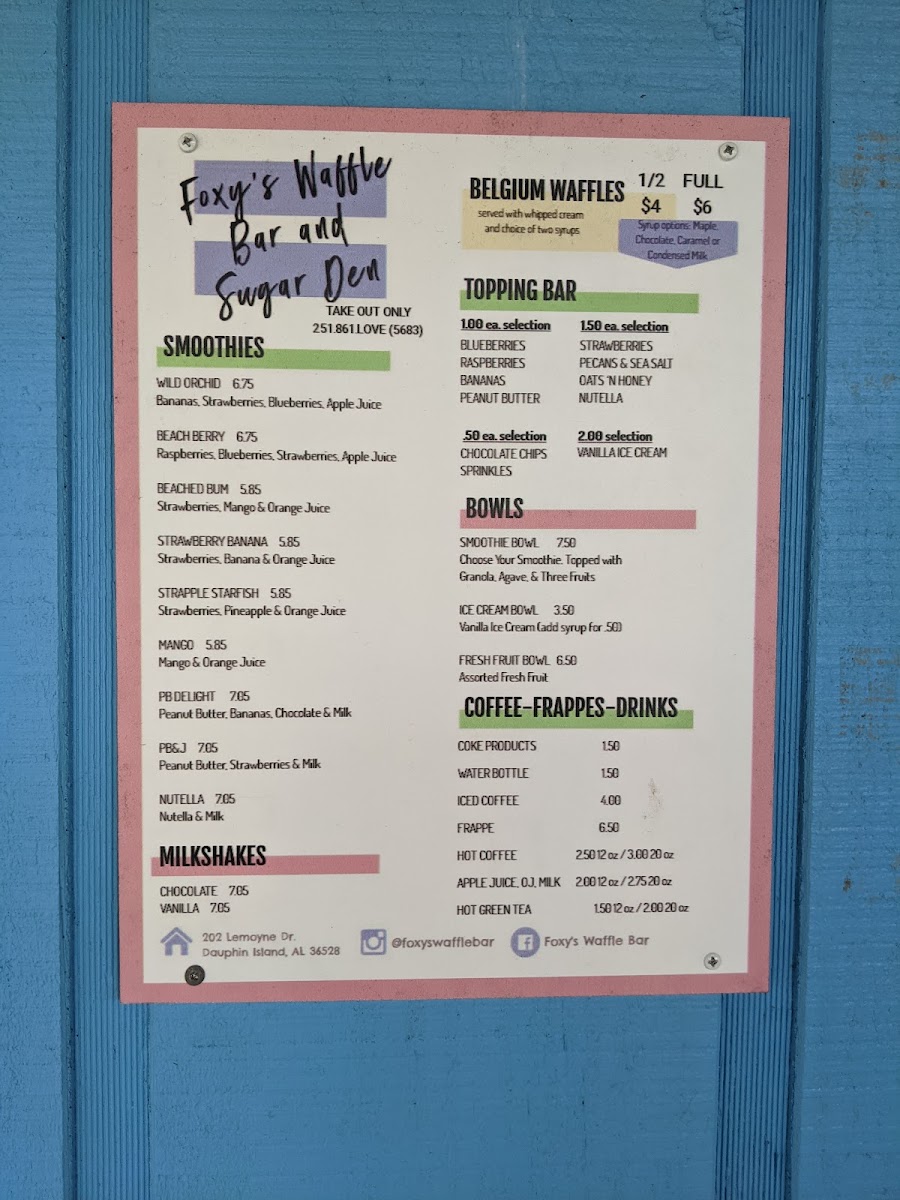 Foxy's Waffle
Bar and
Sugar Den
TAKE OUT ONLY
251.861.LOVE (5683)
SMOOTHIES
WILD ORCHID 6.75
Bananas, Strawberries, Blueberries, Apple Juice
BEACH BERRY 6.75
Raspberries, Blueberries, Strawberries, Apple Juice
BEACHED BUM 5.85
Strawberries, Mango & Orange Juice
STRAWBERRY BANANA 5.85
Strawberries, Banana & Orange Juice
STRAPPLE STARFISH 5.85
Strawberries, Pineapple & Orange Juice
MANGO 5.85
Mango & Orange Juice
PB DELIGHT 7.05
Peanut Butter, Bananas, Chocolate & Milk
PB&J 7.05
Peanut Butter, Strawberries & Milk
NUTELLA 7.05
Nutella & Milk
MILKSHAKES
CHOCOLATE 7.05
VANILLA 7.05
BELGIUM WAFFLES 1/2 FULL
$4 $6
served with whipped cream
and choice of two syrups
Syrup options: Maple,
Chocolate, Caramel or
Condensed Milk
TOPPING BAR
1.00 ea. selection 1.50 ea. selection
BLUEBERRIES STRAWBERRIES
RASPBERRIES PECANS & SEA SALT
BANANAS OATS 'N HONEY
PEANUT BUTTER NUTELLA
.50 ea. selection 2.00 selection
CHOCOLATE CHIPS VANILLA ICE CREAM
SPRINKLES
BOWLS
SMOOTHIE BOWL 7.50
Choose Your Smoothie. Topped with
Granola, Agave, & Three Fruits
ICE CREAM BOWL 3.50
Vanilla Ice Cream (add syrup for .50)
FRESH FRUIT BOWL 6.50
Assorted Fresh Fruit
COFFEE-FRAPPES-DRINKS
COKE PRODUCTS 1.50
WATER BOTTLE 1.50
ICED COFFEE 4.00
FRAPPE 6.50
HOT COFFEE 2.50 12 oz / 3.00 20 oz
APPLE JUICE, OJ, MILK 2.00 12 oz / 2.75 20 oz
HOT GREEN TEA 1.50 12 oz / 2.00 20 oz
202 Lemoyne Dr.
Dauphin Island, AL 36528
@foxyswafflebar
Foxy's Waffle Bar